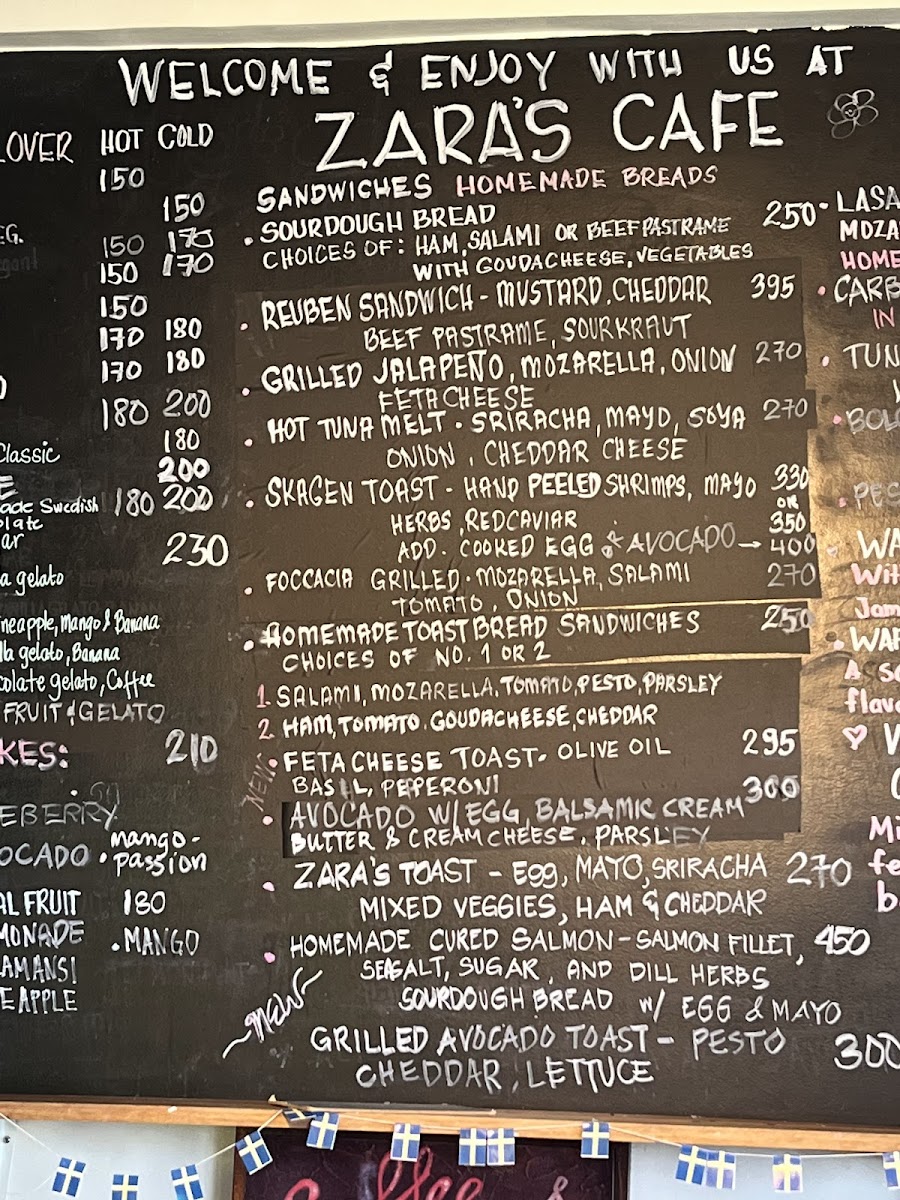 WELCOME & ENJOY WITH US AT
ZARA'S CAFE
LOVER HOT COLD
150
150
EG. 150 170
150 170
150
170 180
170 180
180 200
Classic 180
200
ade Swedish 180 200
olate
ar 230
a gelato
neapple, Mango & Banana
lla gelato, Banana
colate gelato, Coffee
FRUIT & GELATO
KES: 210
EBERRY
OCADO • mango-
passion
AL FRUIT 180
MONADE • MANGO
AMANSI
E APPLE
SANDWICHES HOMEMADE BREADS
• SOURDOUGH BREAD 250
CHOICES OF: HAM, SALAMI OR BEEF PASTRAME
WITH GOUDACHEESE, VEGETABLES
• REUBEN SANDWICH - MUSTARD, CHEDDAR 395
BEEF PASTRAME, SOURKRAUT
• GRILLED JALAPEÑO, MOZARELLA, ONION 270
FETA CHEESE
• HOT TUNA MELT - SRIRACHA, MAYO, SOYA 270
ONION, CHEDDAR CHEESE
• SKAGEN TOAST - HAND PEELED SHRIMPS, MAYO 330
OR
HERBS, REDCAVIAR 350
ADD. COOKED EGG & AVOCADO → 400
• FOCCACIA GRILLED - MOZARELLA, SALAMI 270
TOMATO, ONION
• HOMEMADE TOAST BREAD SANDWICHES 250
CHOICES OF NO. 1 OR 2
1. SALAMI, MOZARELLA, TOMATO, PESTO, PARSLEY
2. HAM, TOMATO, GOUDACHEESE, CHEDDAR
NEW • FETA CHEESE TOAST - OLIVE OIL 295
BASIL, PEPERONI
• AVOCADO W/ EGG, BALSAMIC CREAM 300
BUTTER & CREAM CHEESE, PARSLEY
• ZARA'S TOAST - Egg, MAYO, SRIRACHA 270
MIXED VEGGIES, HAM & CHEDDAR
• HOMEMADE CURED SALMON - SALMON FILLET, 450
SEASALT, SUGAR, AND DILL HERBS
SOURDOUGH BREAD W/ EGG & MAYO
~NEW~
GRILLED AVOCADO TOAST - PESTO 300
CHEDDAR, LETTUCE
• LASA
MOZA
HOME
• CARB
IN
• TUN
• BOLO
• PES
WA
Wit
Jam
• WAF
A sc
flavo
Mi
fe
b
Coffee &